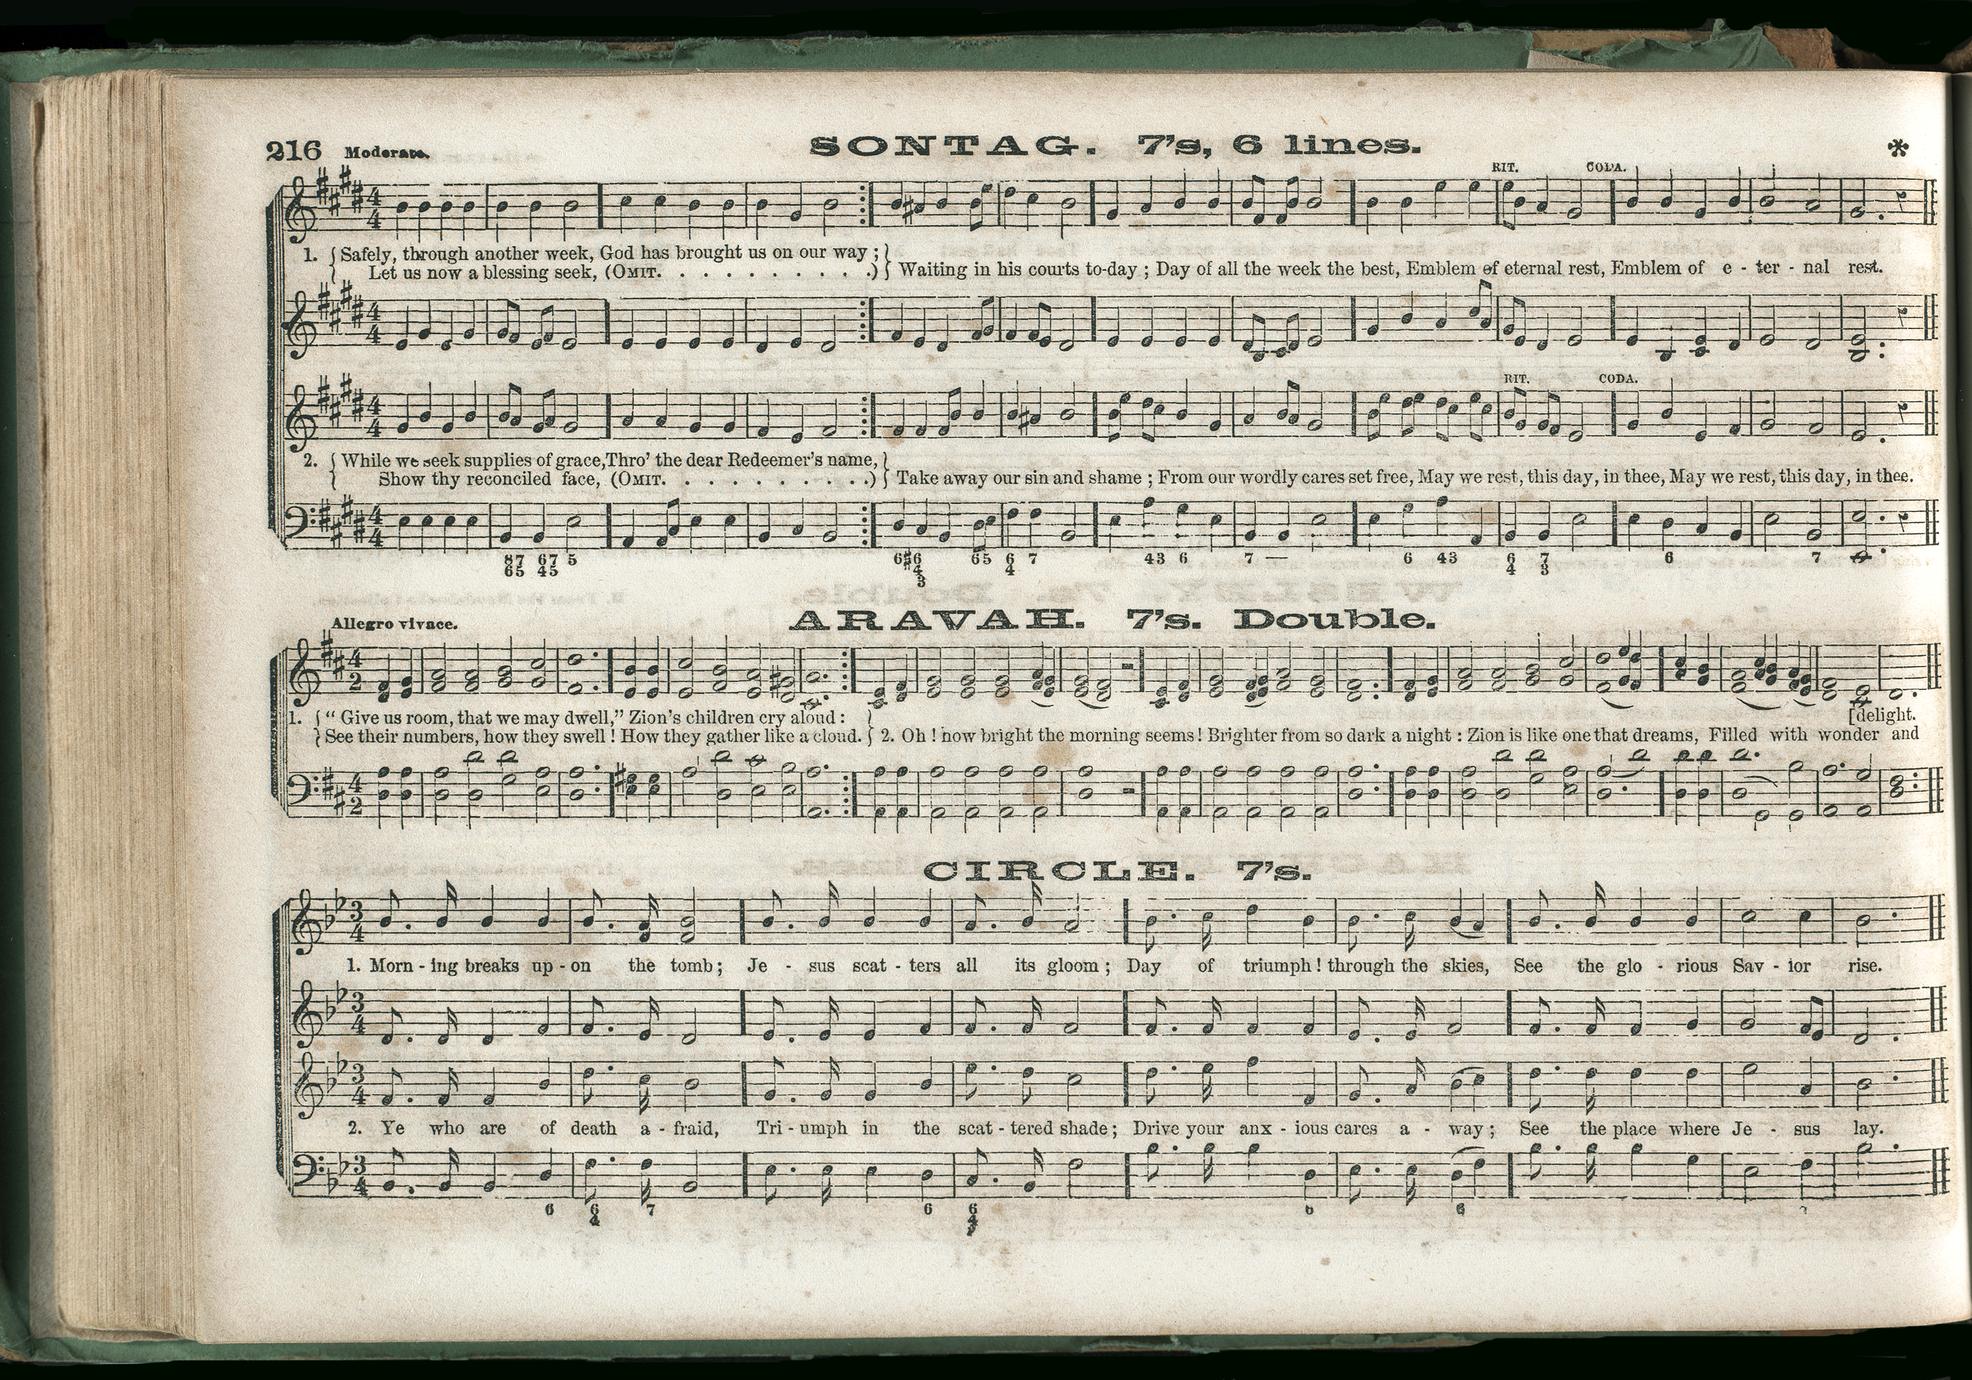 216 Moderato. SONTAG. 7's, 6 lines. *
RIT. CODA.
1. { Safely, through another week, God has brought us on our way ; }
{ Let us now a blessing seek, (OMIT. . . . . . . . . . .) } Waiting in his courts to-day ; Day of all the week the best, Emblem of eternal rest, Emblem of e - ter - nal rest.
RIT. CODA.
2. { While we seek supplies of grace, Thro' the dear Redeemer's name, }
{ Show thy reconciled face, (OMIT. . . . . . . . . . .) } Take away our sin and shame ; From our wordly cares set free, May we rest, this day, in thee, May we rest, this day, in thee.
87 67 5 6#6 65 6 7 43 6 7 — 6 43 6 7 6 7
65 45 4 4 4 3
3
Allegro vivace. ARAVAH. 7's. Double.
1. { “ Give us room, that we may dwell,” Zion's children cry aloud : } [delight.
{ See their numbers, how they swell ! How they gather like a cloud. } 2. Oh ! how bright the morning seems ! Brighter from so dark a night : Zion is like one that dreams, Filled with wonder and
CIRCLE. 7's.
1. Morn - ing breaks up - on the tomb ; Je - sus scat - ters all its gloom ; Day of triumph ! through the skies, See the glo - rious Sav - ior rise.
2. Ye who are of death a - fraid, Tri - umph in the scat - tered shade ; Drive your anx - ious cares a - way ; See the place where Je - sus lay.
6 6 7 6 6 6 6
4 4